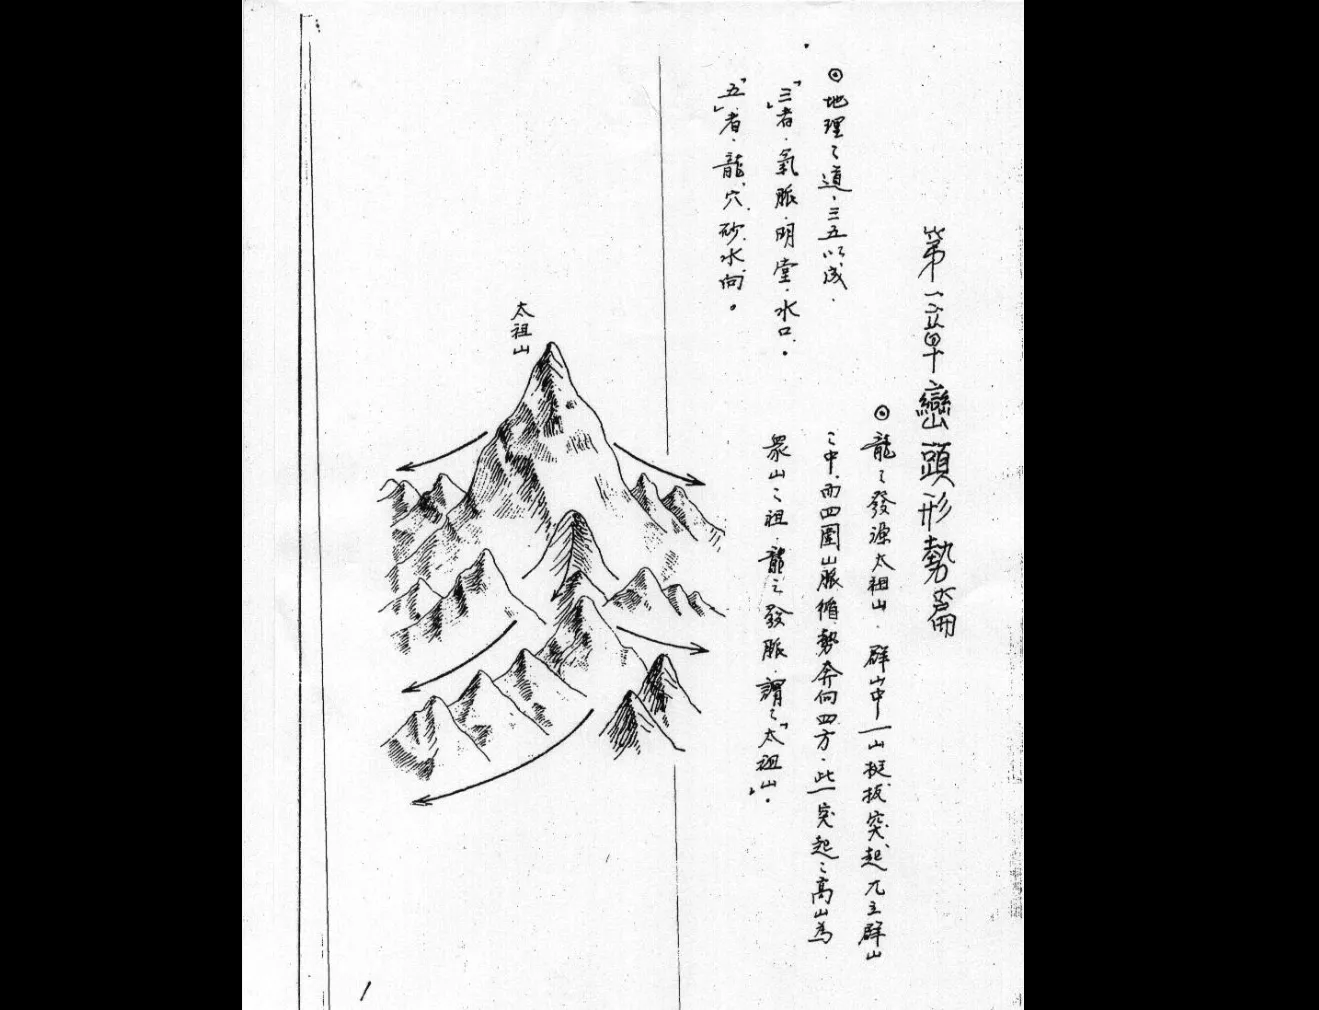 第一章 巒頭形勢篇
◎龍之發源太祖山．群山中一山挺拔突起兀立群山
之中．而四圍山脈循勢奔向四方．此一突起之高山為
眾山之祖．龍之發脈．謂之「太祖山」．
◎地理之道．三五以成．
「三」者．氣脈．明堂．水口．
「五」者．龍、穴、砂、水、向。
太祖山
1